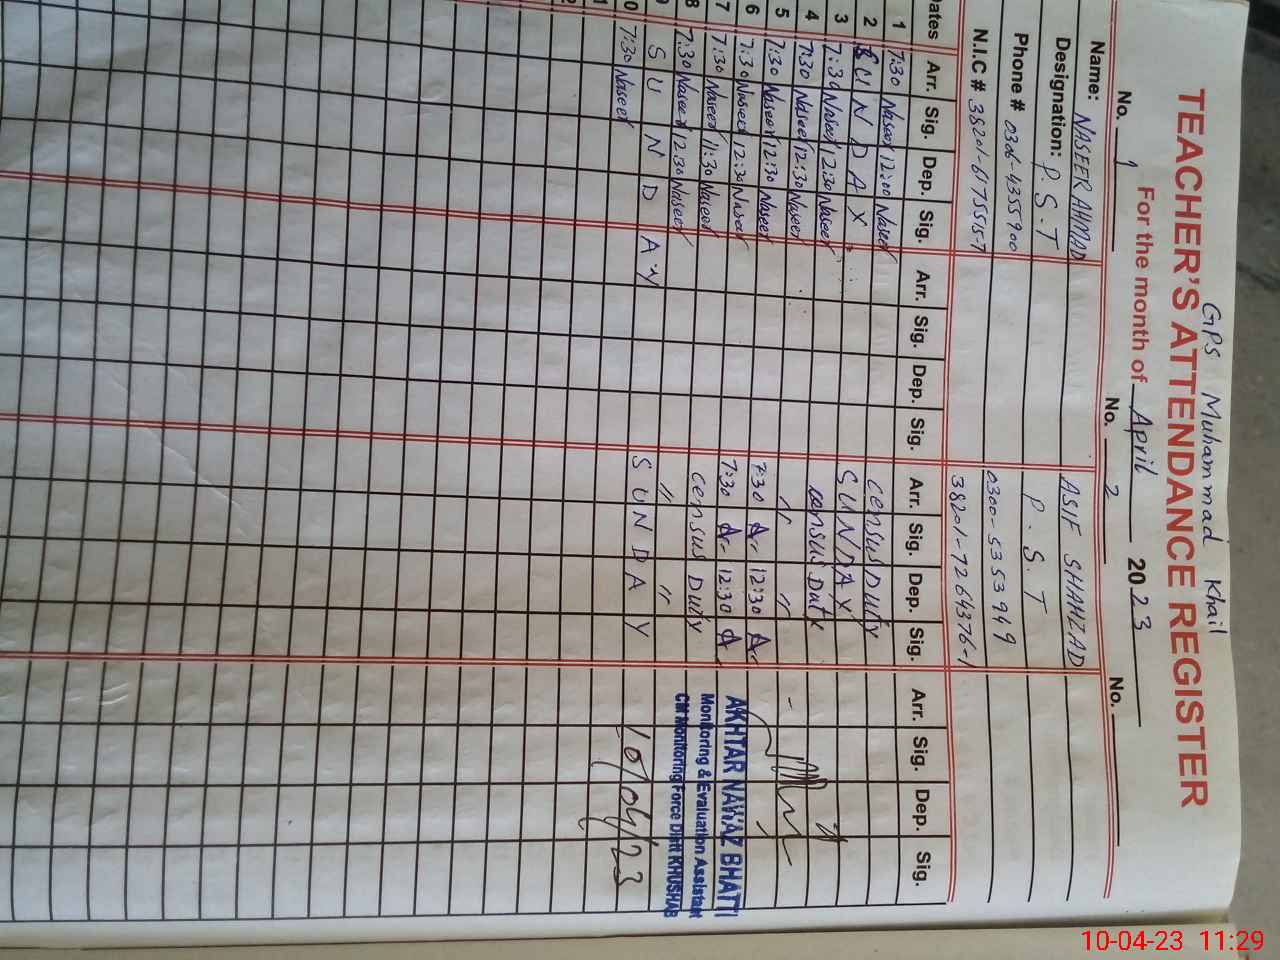 GPS Muhammad Khail
TEACHER'S ATTENDANCE REGISTER
For the month of April 2023
No. 1 No. 2 No.
Name: NASEER AHMAD ASIF SHAHZAD
Designation: P.S.T P.S.T
Phone # 0306-4355900 0300-5353949
N.I.C # 38201-6175515-7 38201-7264376-1
Dates Arr. Sig. Dep. Sig. Arr. Sig. Dep. Sig. Arr. Sig. Dep. Sig. Arr. Sig. Dep. Sig.
1 7:30 Naseer 12:00 Naseer Census Duty
2 SUNDAY SUNDAY
3 7:30 Naseer 12:30 Naseer Census Duty
4 7:30 Naseer 12:30 Naseer " "
5 7:30 Naseer 12:30 Naseer 7:30 A- 12:30 A-
6 7:30 Naseer 12:30 Naseer 7:30 A- 12:30 A
7 7:30 Naseer 11:30 Naseer Census Duty
8 7:30 Naseer 12:30 Naseer " "
9 SUNDAY SUNDAY
0 7:30 Naseer
AKHTAR NAWAZ BHATTI
Monitoring & Evaluation Assistant
CM Monitoring Force Distt KHUSHAB
10/04/23
10-04-23 11:29